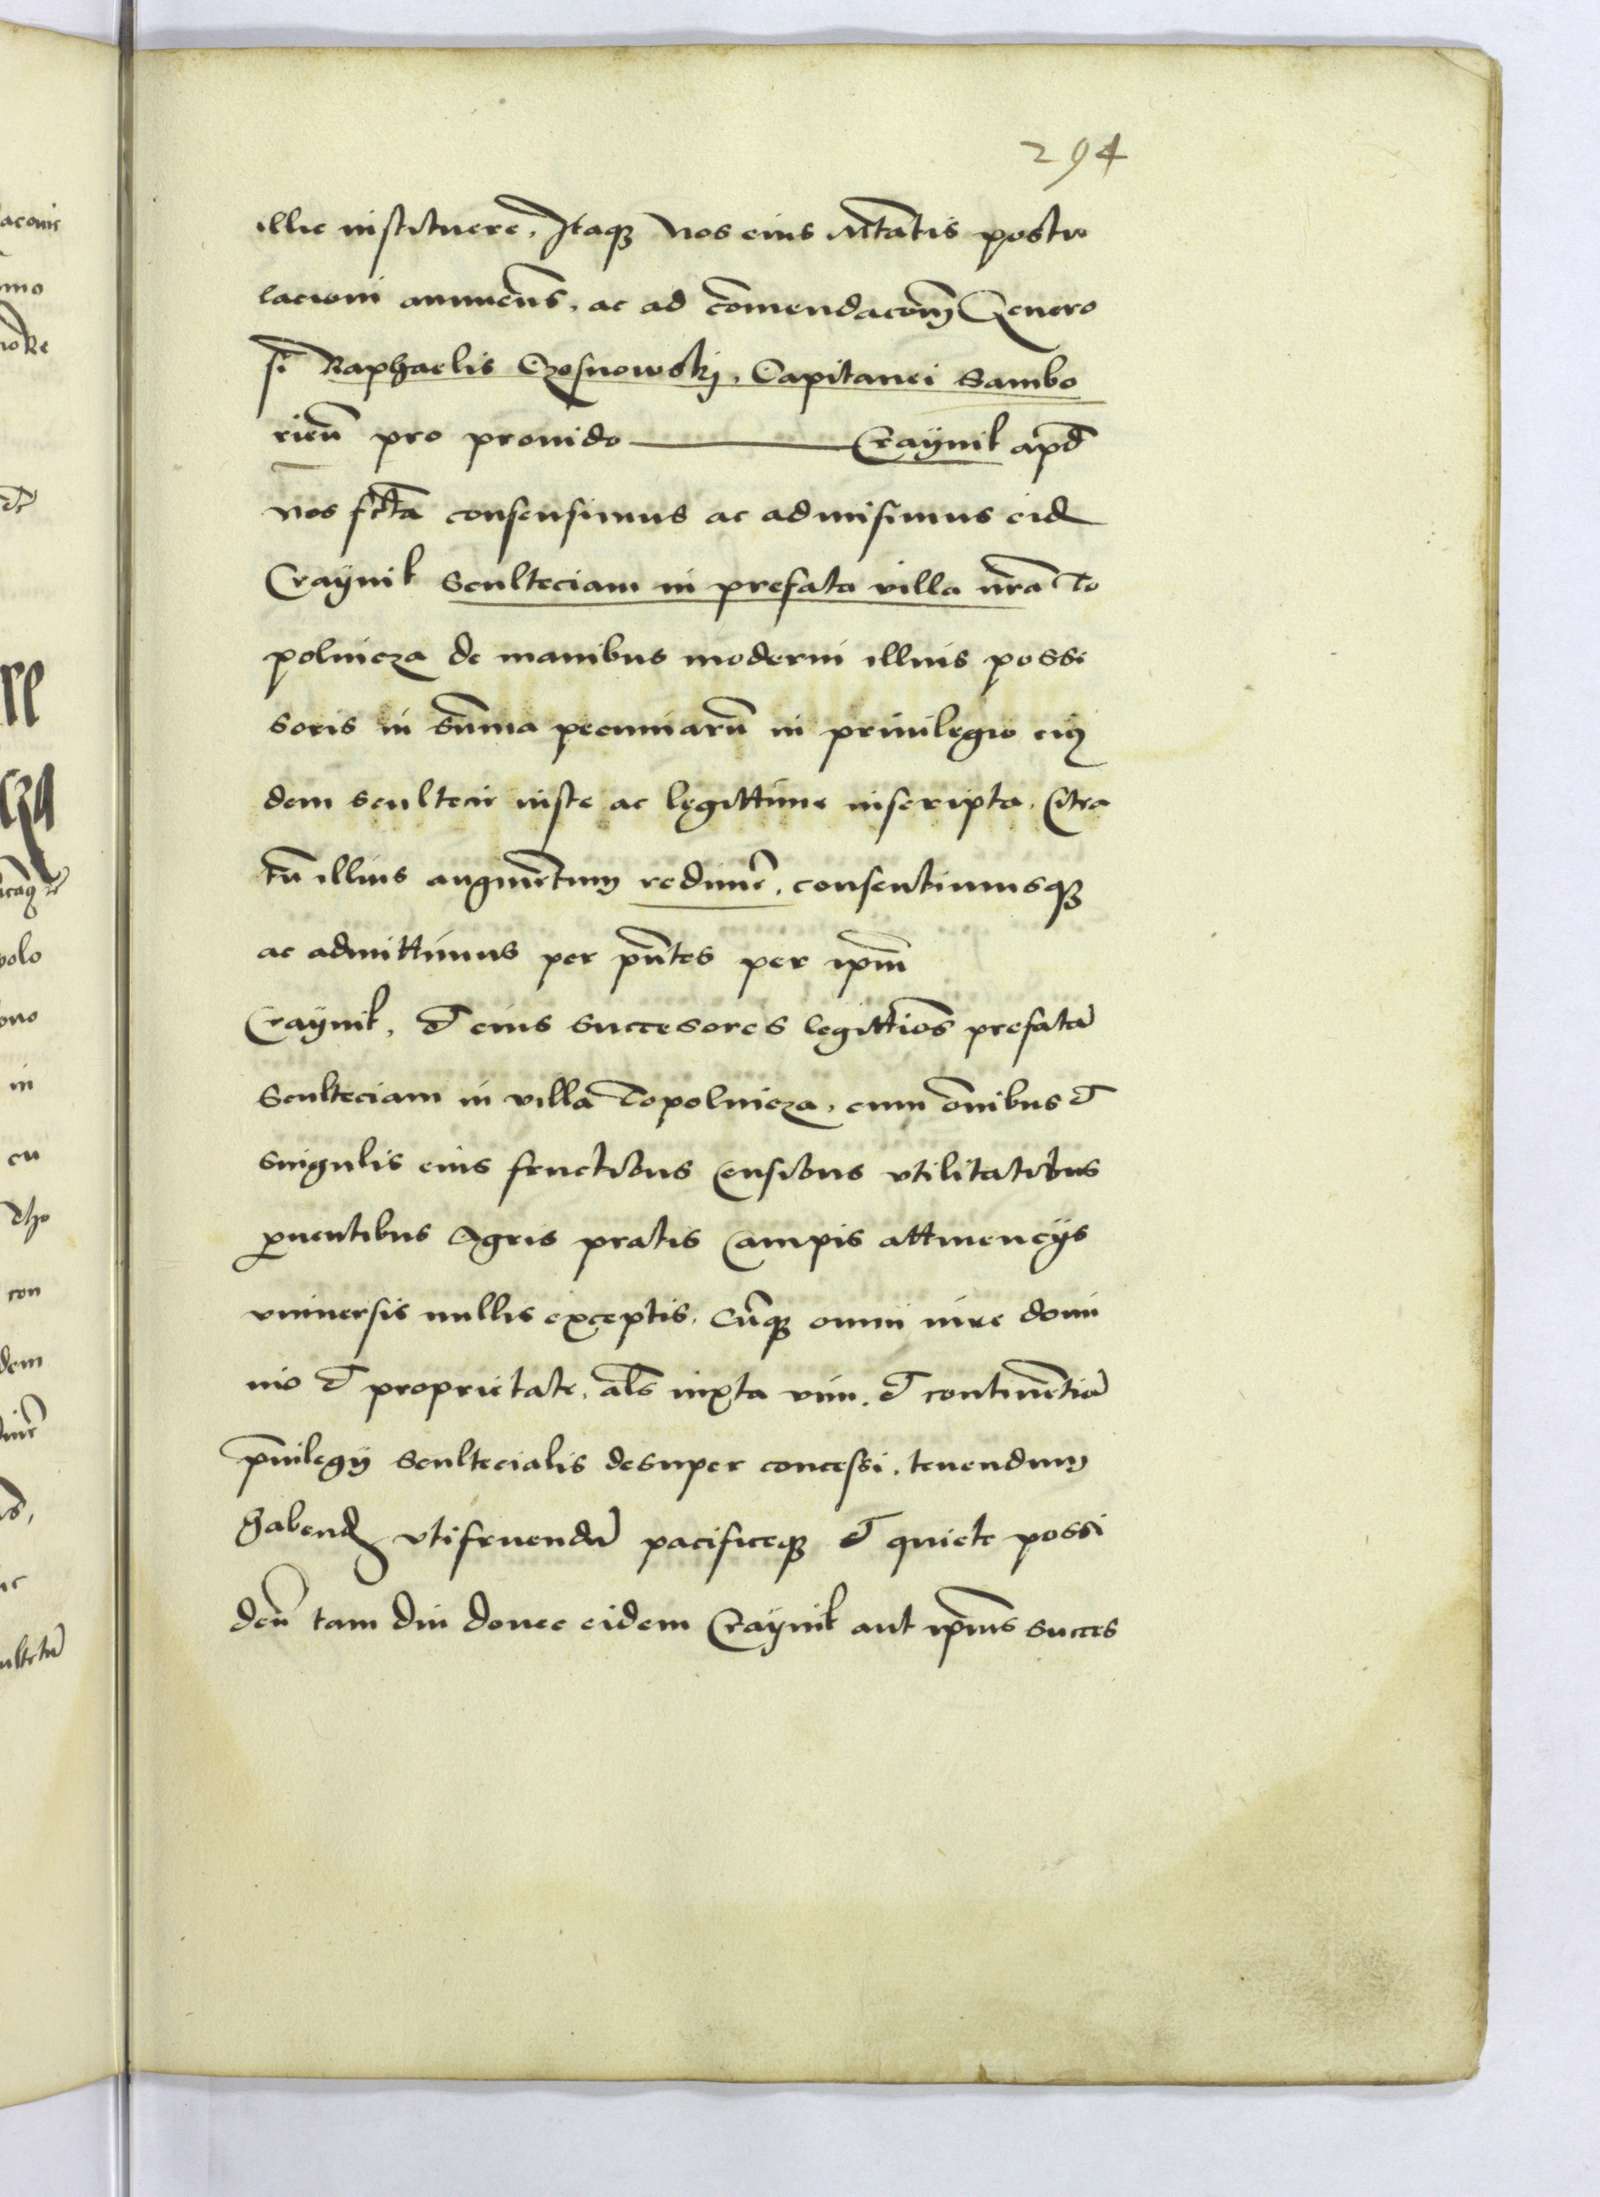 294
illic instituere. Itaq3 Nos eius Mtatis postu
lacioni annuens. ac ad comendacom Genero
si Raphaelis Czosnowskj. Capitanei Sambo
rien pro prouido ——— Craÿnik apd
nos fcta consensimus ac admisimus eid
Craÿnik Sculteciam in prefata villa nra To
polnicza de manibus moderni illius possi
soris in summa pecuniaru in priuilegio eiq
dem sculteciae iuste ac legittime inscripta. Citra
tn illius augmentum redimere. consentimusq3
ac admittimus per pntes per ipm
Craÿnik. et eius succesores legittios prefata
Sculteciam in villa Topolnicza. cum omibus et
singulis eius fructibus Censibus vtilitatibus
puentibus Agris pratis Campis attinencijs
vniuersis nullis exceptis. Cumq3 omni iure domi
nio et proprietate. als iuxta vim. et continentia
priuilegij scultecialis desuper concessi. tenendum
habend vtifruendu pacificeq3 et quiete possi
den tam diu donec eidem Craÿnik aut ipius succes